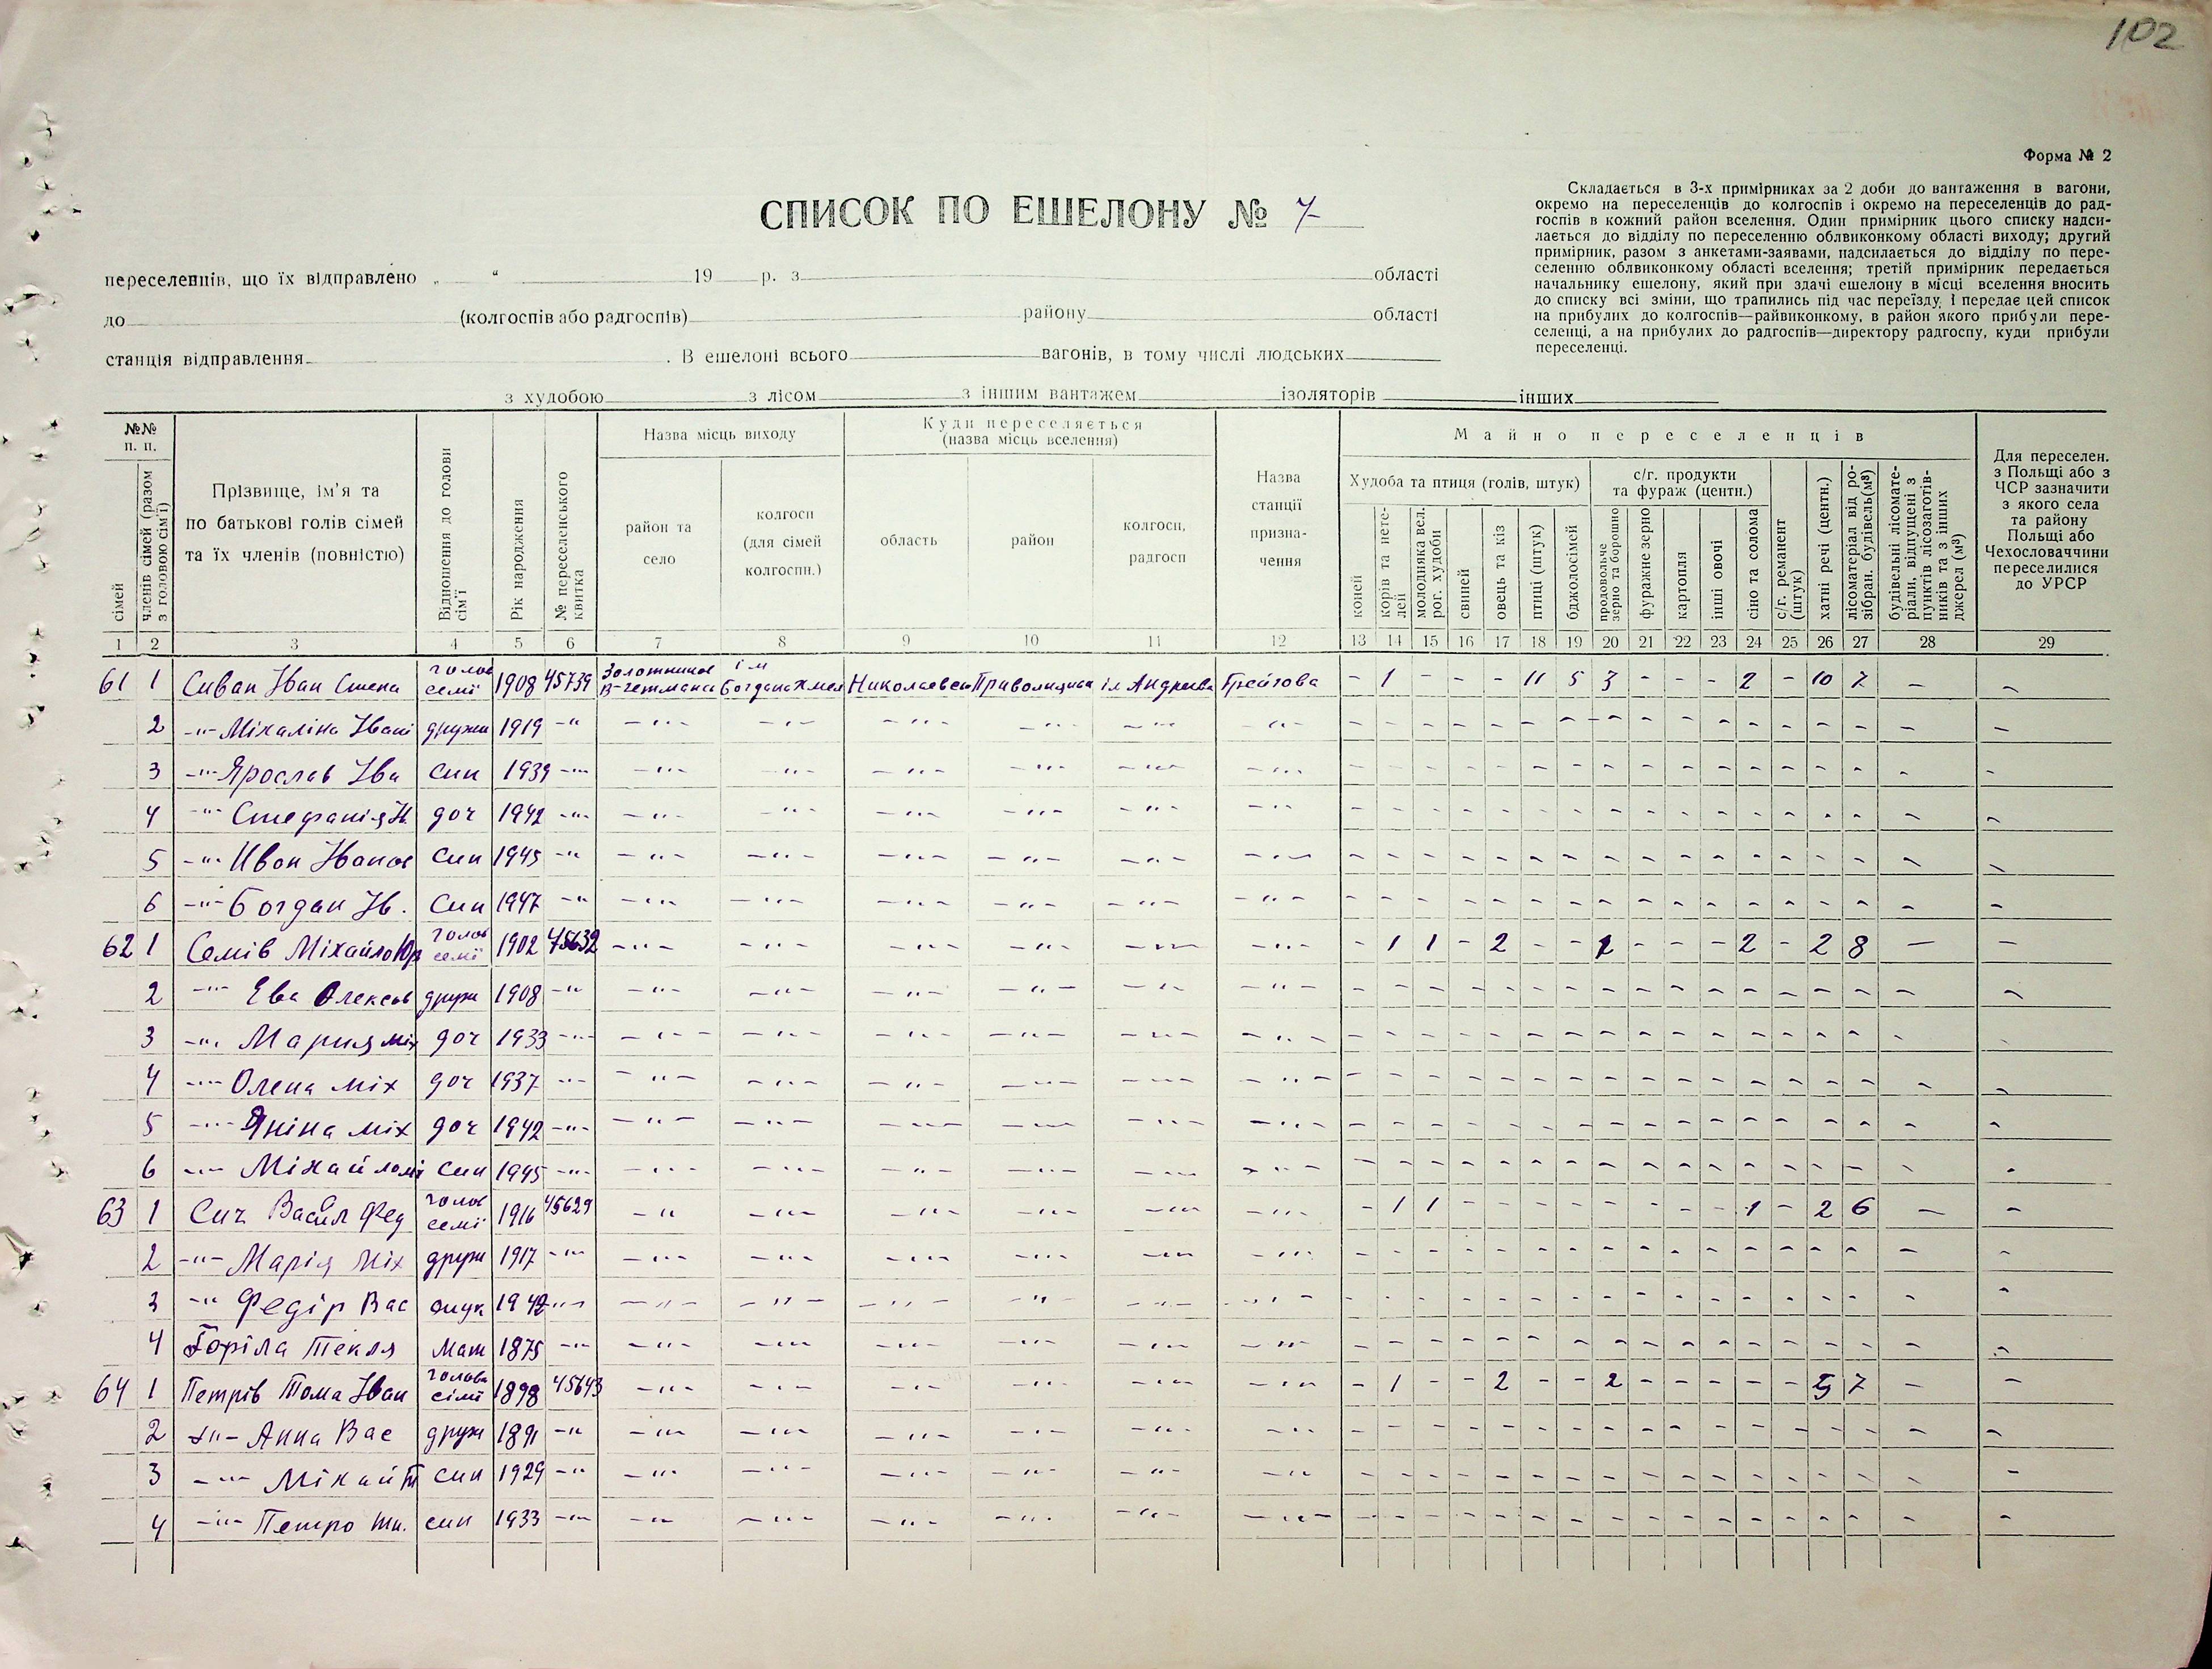 102
Форма № 2
СПИСОК ПО ЕШЕЛОНУ № 7
Складається в 3-х примірниках за 2 доби до вантаження в вагони,
окремо на переселенців до колгоспів і окремо на переселенців до рад-
госпів в кожний район вселення. Один примірник цього списку надси-
лається до відділу по переселенню облвиконкому області виходу; другий
примірник, разом з анкетами-заявами, надсилається до відділу по пере-
селенню облвиконкому області вселення; третій примірник передається
начальнику ешелону, який при здачі ешелону в місці вселення вносить
до списку всі зміни, що трапились під час переїзду, і передає цей список
на прибулих до колгоспів—райвиконкому, в район якого прибули пере-
селенці, а на прибулих до радгоспів—директору радгоспу, куди прибули
переселенці.
переселенців, що їх відправлено „ “ 19 р. з області
до (колгоспів або радгоспів) району області
станція відправлення . В ешелоні всього вагонів, в тому числі людських
з худобою з лісом з іншим вантажем ізоляторів інших
№№ п. п.
сімей
членів сімей (разом з головою сім'ї)
Прізвище, ім'я та
по батькові голів сімей
та їх членів (повністю)
Відношення до голови сім'ї
Рік народження
№ переселенського квитка
Назва місць виходу
район та село
колгосп (для сімей колгоспн.)
Куди переселяється
(назва місць вселення)
область
район
колгосп, радгосп
Назва станції призна-
чення
Майно переселенців
Худоба та птиця (голів, штук)
коней
корів та нете-
лей
молодняка вел. рог. худоби
свиней
овець та кіз
птиці (штук)
бджолосімей
с/г. продукти та фураж (центн.)
продовольче зерно та борошно
фуражне зерно
картопля
інші овочі
сіно та солома
с/г. реманент (штук)
хатні речі (центн.)
лісоматеріал від ро-
зібран. будівель (м³)
будівельні лісомате-
ріали, відпущені з
пунктів лісозаготів-
ників та з інших
джерел (м³)
Для переселен.
з Польщі або з
ЧСР зазначити
з якого села
та району
Польщі або
Чехословаччини
переселилися
до УРСР
1 2 3 4 5 6 7 8 9 10 11 12 13 14 15 16 17 18 19 20 21 22 23 24 25 26 27 28 29
61 1 Сиван Іван Степа голов семї 1908 45739 Золотников В-гетмана ім Богдана Хмел Николаевск Приволищан ім Андреева Грейгова - 1 - - - 11 5 3 - - - 2 - 10 7 - -
2 -"- Міхаліна Івані дружи 1919 -"-
3 -"- Ярослав Іва син 1939 -"-
4 -"- Стефанія Ів. доч 1942 -"-
5 -"- Иван Іванов син 1945 -"-
6 -"- Богдан Ів. син 1947 -"-
62 1 Семів Міхайло Юр голов семї 1902 45632 -"- - 1 1 - 2 - - 1 - - - 2 - 2 8 - -
2 -"- Ева Олексів друж 1908 -"-
3 -"- Мария міх доч 1933 -"-
4 -"- Олена міх доч 1937 -"-
5 -"- Яніна міх доч 1942 -"-
6 -"- Міхайло мі син 1945 -"-
63 1 Сич Васил Фед голов семї 1916 45629 -"- - 1 1 - - - - - - - - 1 - 2 6 - -
2 -"- Марія міх друж 1917 -"-
3 -"- Федір Вас 1942 -"-
4 Горіла Текля мат 1875 -"-
64 1 Петрів Тома Іван голова сімї 1898 45643 -"- - 1 - - 2 - - 2 - - - - - 5 7 - -
2 -"- Анна Вас друж 1891 -"-
3 -"- Міхай Т син 1929 -"-
4 -"- Петро син 1933 -"-